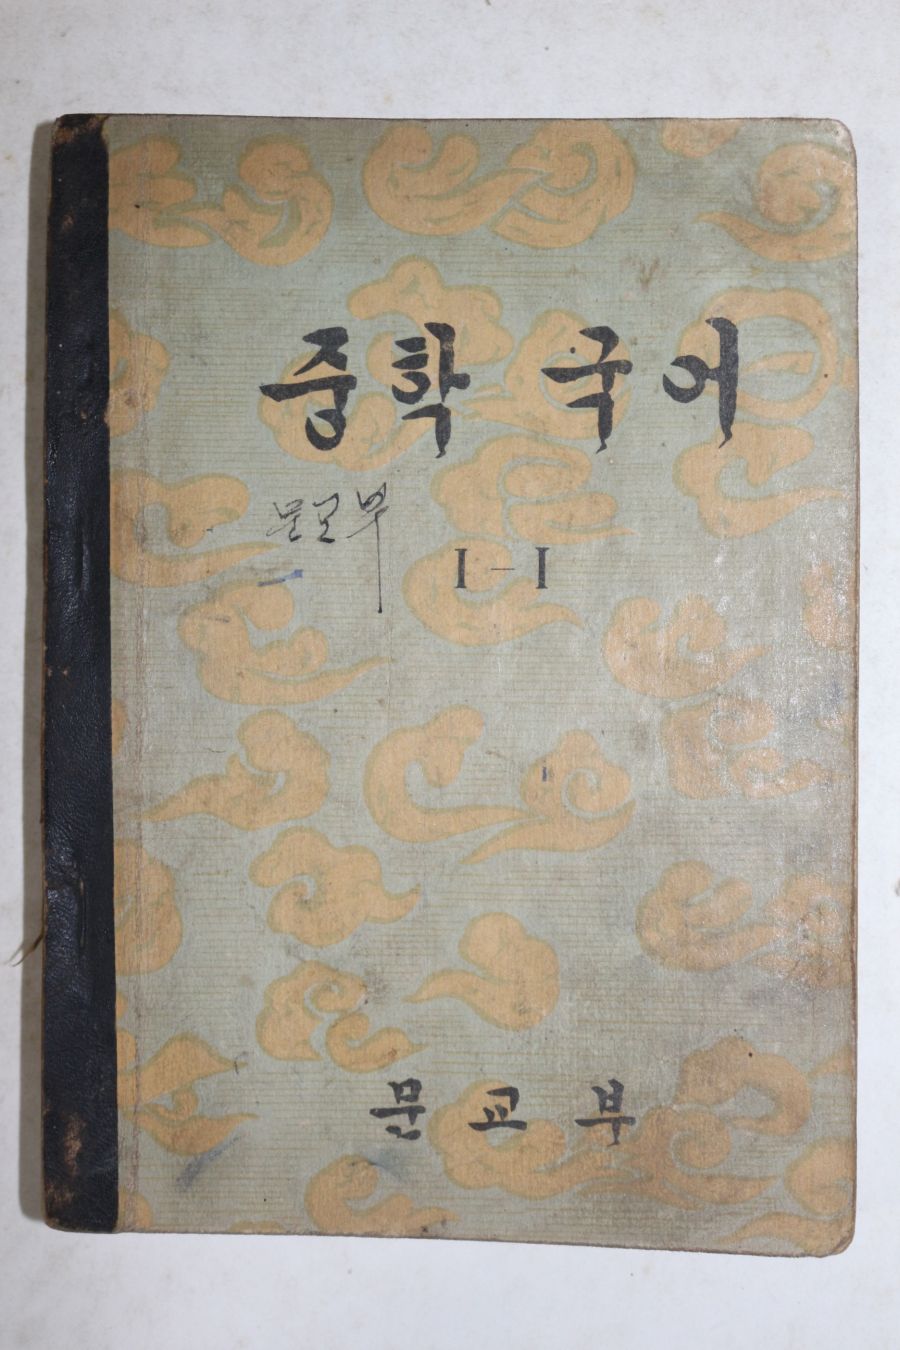 중학 국어
문교부
I-I
문교부